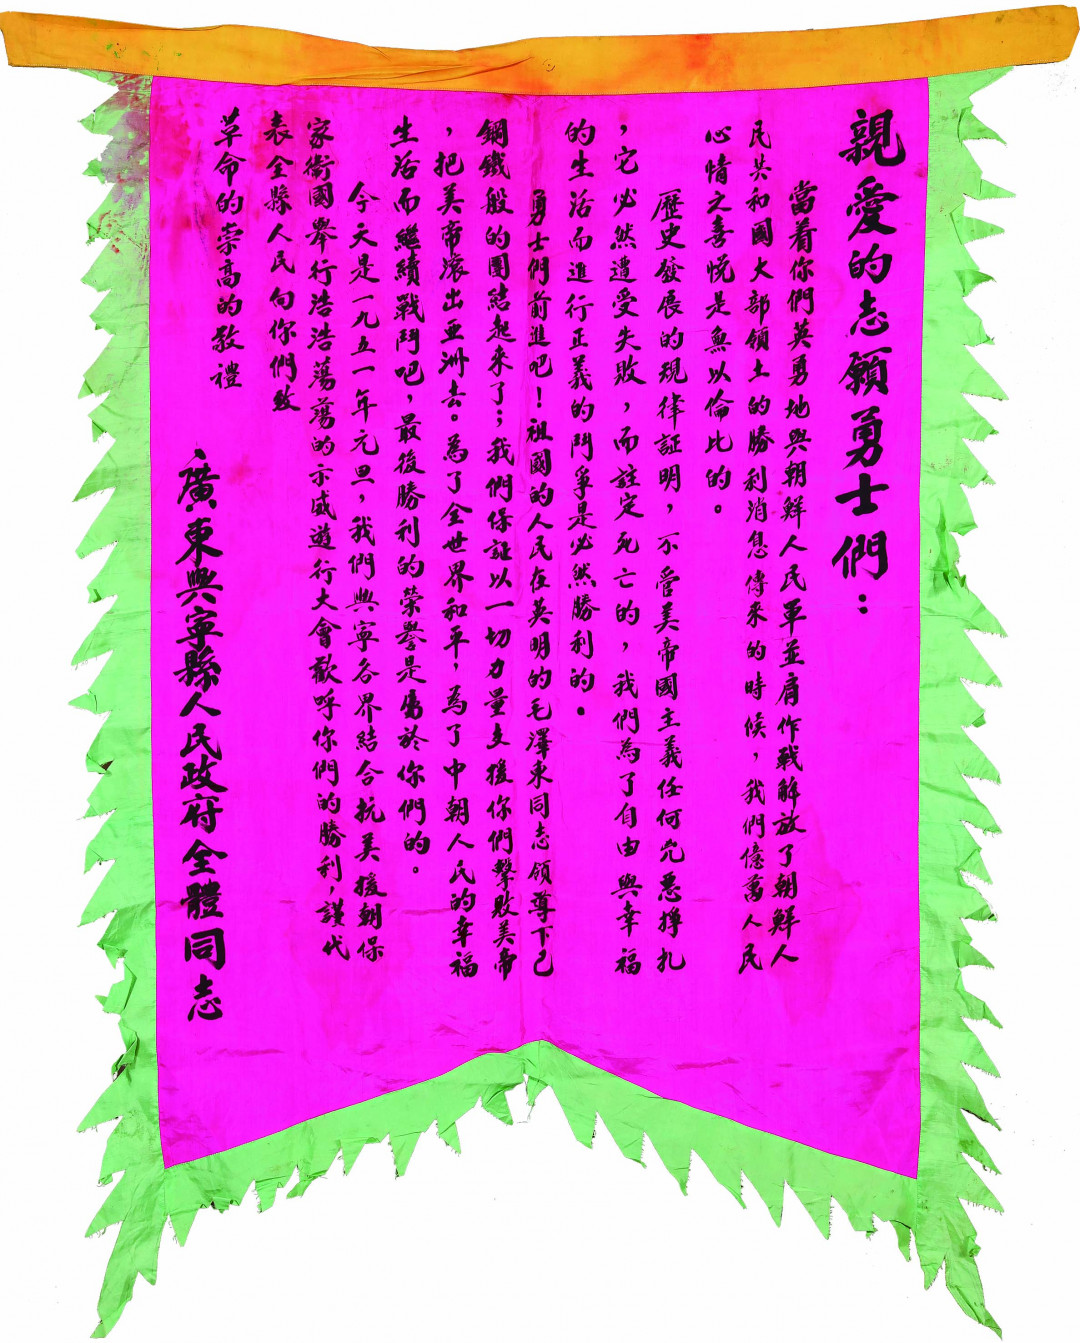 親愛的志願勇士們：
當着你們英勇地與朝鮮人民軍並肩作戰解放了朝鮮人
民共和國大部領土的勝利消息傳來的時候，我們億萬人民
心情之喜悅是無以倫比的。
歷史發展的規律証明，不管美帝國主義任何兇惡掙扎
，它必然遭受失敗，而註定死亡的，我們為了自由與幸福
的生活而進行正義的鬥爭是必然勝利的。
勇士們前進吧！祖國的人民在英明的毛澤東同志領導下已
鋼鐵般的團結起來了；我們保証以一切力量支援你們擊敗美帝
，把美帝滾出亚洲去。為了全世界和平，為了中朝人民的幸福
生活而繼續戰鬥吧，最後勝利的榮譽是屬於你們的。
今天是一九五一年元旦，我們興寧各界結合抗美援朝保
家衛國舉行浩浩蕩蕩的示威遊行大會歡呼你們的勝利，謹代
表全縣人民向你們致
革命的崇高的敬禮
廣東興寧縣人民政府全體同志